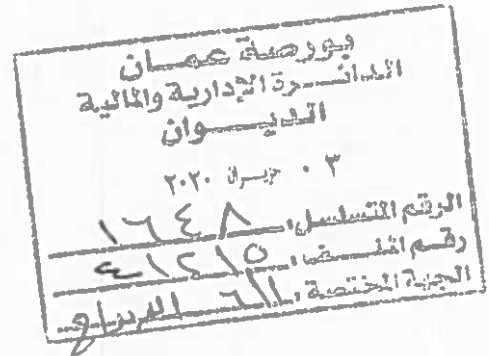 بورصة عمان
الدائرة الإدارية والمالية
الديوان
٠٣ حزيران ٢٠٢٠
الرقم المتسلسل: ١٦٤٨
رقم الملف:
الجهة المختصة: